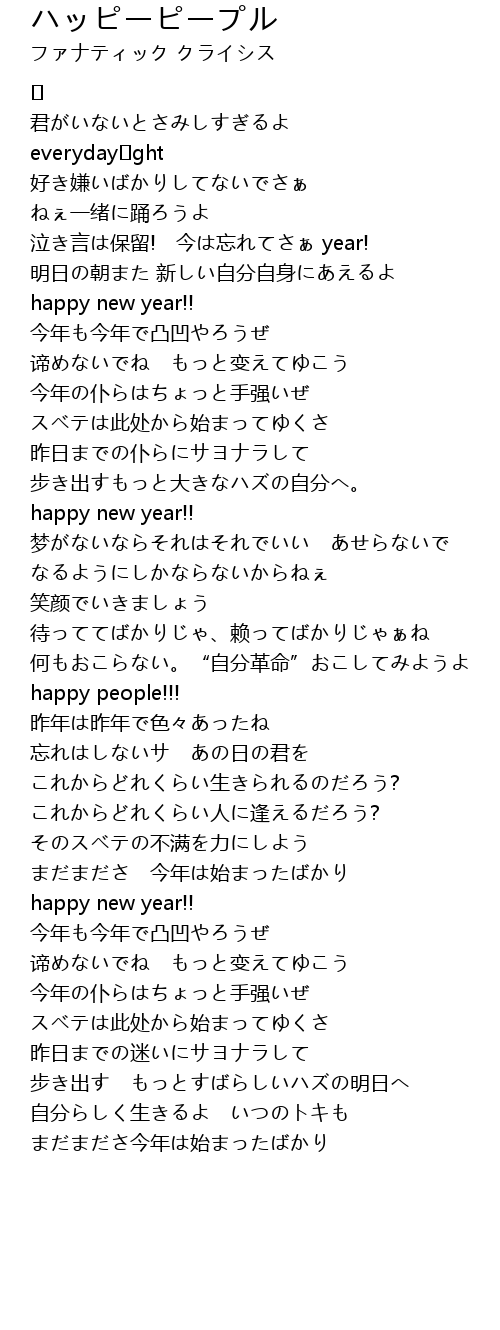 ハッピーピープル
ファナティック クライシス
君がいないとさみしすぎるよ
everyday▯ght
好き嫌いばかりしてないでさぁ
ねぇ一绪に踊ろうよ
泣き言は保留!　今は忘れてさぁ year!
明日の朝また 新しい自分自身にあえるよ
happy new year!!
今年も今年で凸凹やろうぜ
谛めないでね　もっと变えてゆこう
今年の仆らはちょっと手强いぜ
スベテは此处から始まってゆくさ
昨日までの仆らにサヨナラして
歩き出すもっと大きなハズの自分へ。
happy new year!!
梦がないならそれはそれでいい　あせらないで
なるようにしかならないからねぇ
笑颜でいきましょう
待っててばかりじゃ、赖ってばかりじゃぁね
何もおこらない。“自分革命”おこしてみようよ
happy people!!!
昨年は昨年で色々あったね
忘れはしないサ　あの日の君を
これからどれくらい生きられるのだろう?
これからどれくらい人に逢えるだろう?
そのスベテの不满を力にしよう
まだまださ　今年は始まったばかり
happy new year!!
今年も今年で凸凹やろうぜ
谛めないでね　もっと变えてゆこう
今年の仆らはちょっと手强いぜ
スベテは此处から始まってゆくさ
昨日までの迷いにサヨナラして
歩き出す　もっとすばらしいハズの明日へ
自分らしく生きるよ　いつのトキも
まだまださ今年は始まったばかり